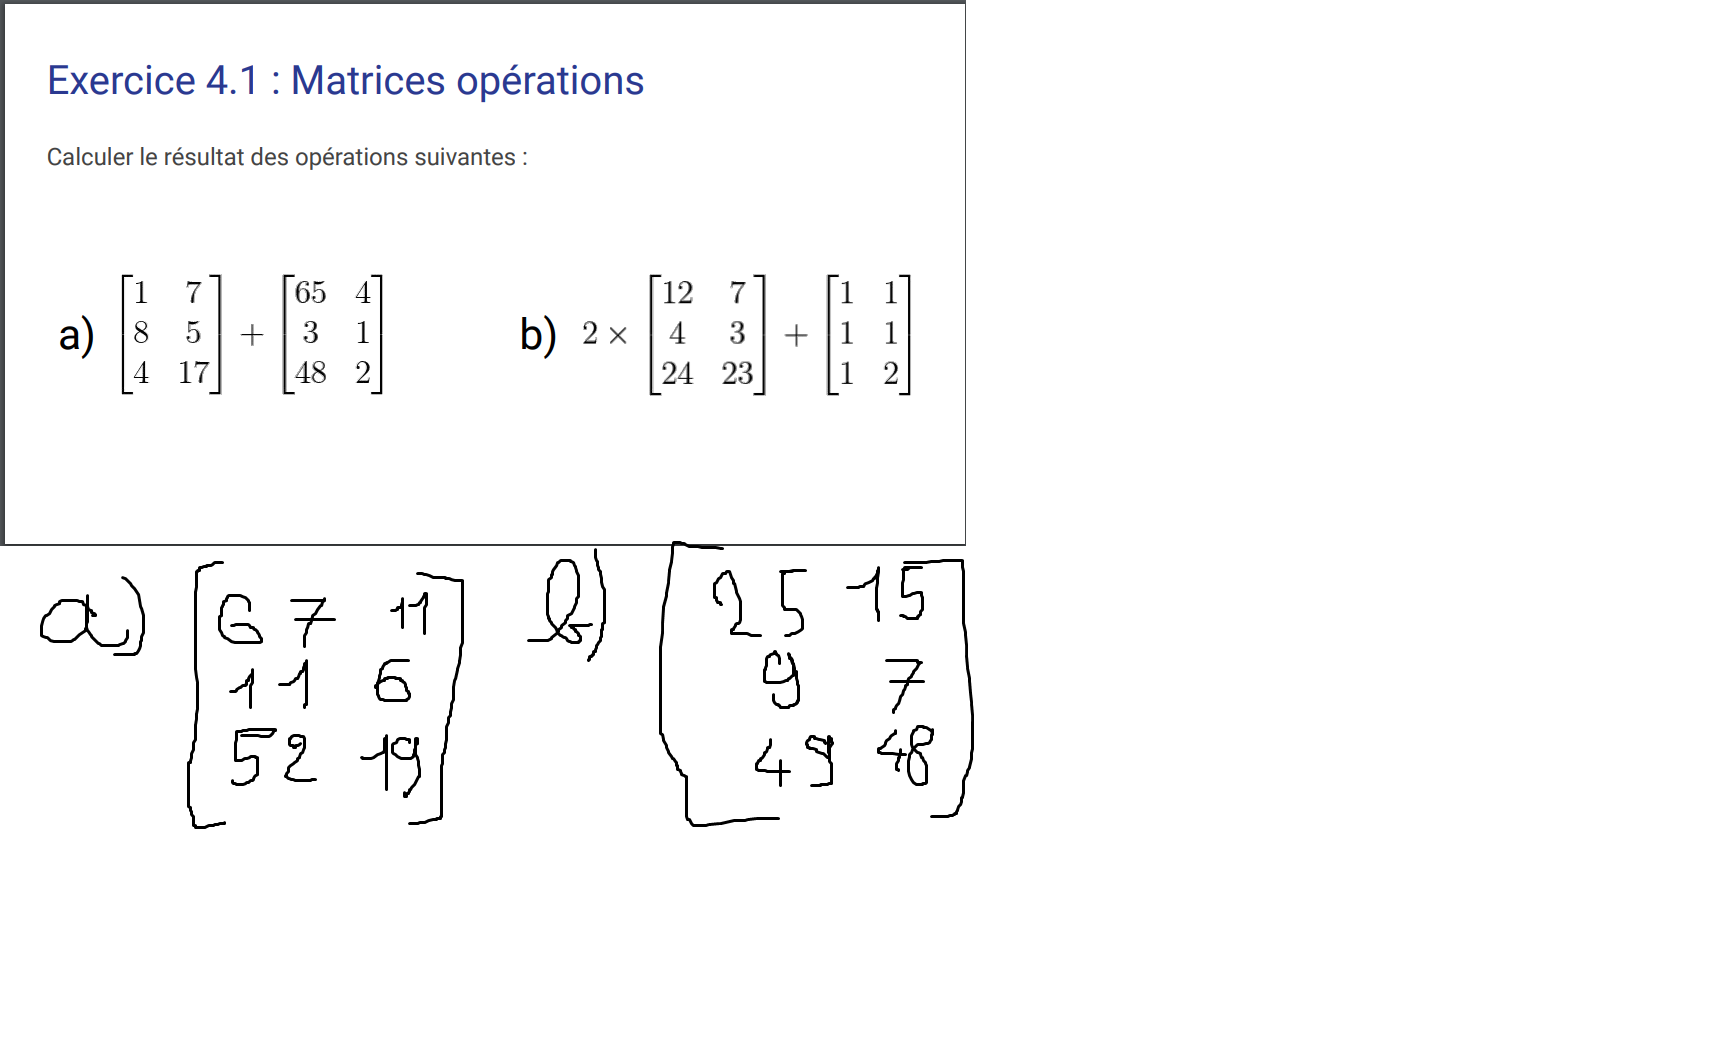 Exercice 4.1 : Matrices opérations
Calculer le résultat des opérations suivantes :
a) [1 7] + [65 4]
[8 5] [3 1]
[4 17] [48 2]
b) 2 × [12 7] + [1 1]
[4 3] [1 1]
[24 23] [1 2]
a) [67 11]
[11 6]
[52 19]
b) [25 15]
[9 7]
[49 48]